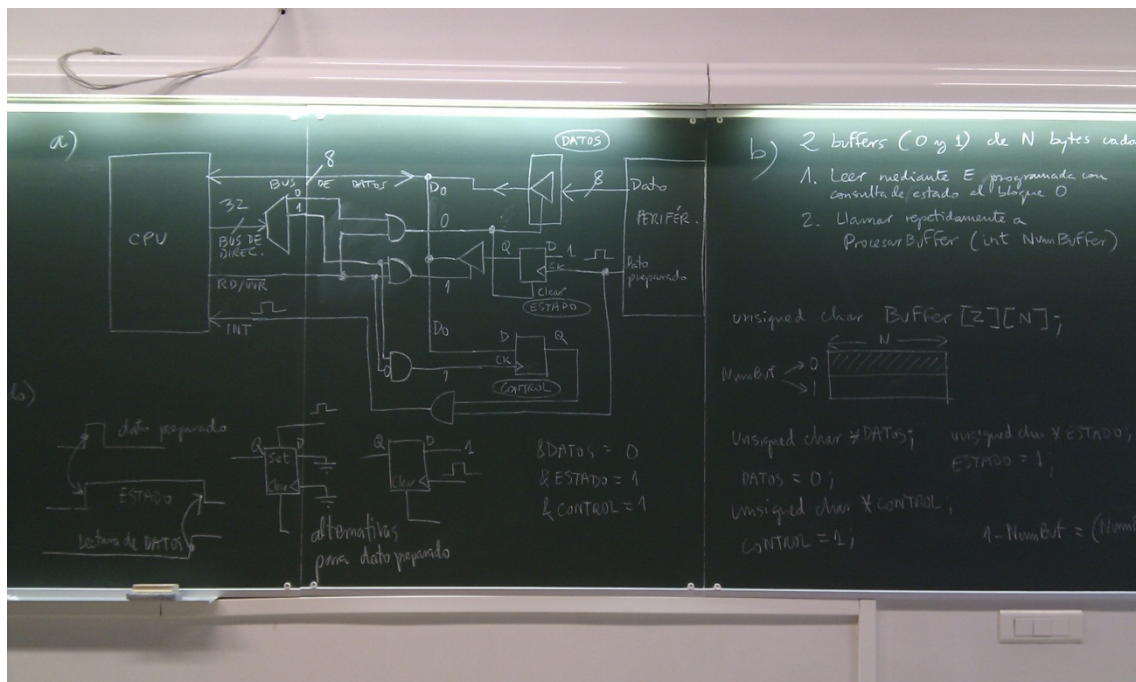 a)
8
BUS DE DATOS
CPU
32
BUS DE
DIREC.
0
1
RD/WR
INT
DATOS
D0
8
Dato
PERIFÉR.
Dato
preparado
0
Q D 1
CK
Clear
ESTADO
1
D0
D Q
CK
CONTROL
1
0
dato preparado
ESTADO
Lectura de DATOS
Q D
Set
Clear
Q D 1
Clear
alternativas
para dato preparado
&DATOS = 0
&ESTADO = 1
&CONTROL = 1
b) 2 buffers (0 y 1) de N bytes cada
1. Leer mediante E programada con
consulta de estado el bloque 0
2. Llamar repetidamente a
ProcesarBuffer (int NumBuffer)
unsigned char Buffer [2][N];
N
NumBuf 0
1
unsigned char *DATOS;
DATOS = 0;
unsigned char *CONTROL;
CONTROL = 1;
unsigned char *ESTADO;
ESTADO = 1;
1-NumBuf =